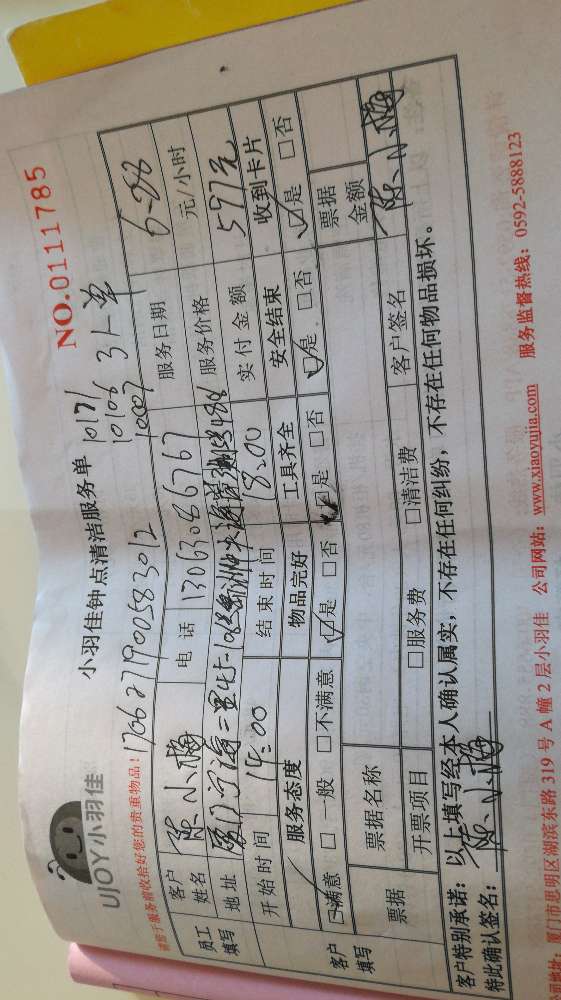 UJOY小羽佳
小羽佳钟点清洁服务单
NO.0111785
请您于服务前收拾好您的贵重物品!
1706271900583012
10171
10106 3人单
10007
员工填写
客户姓名 陈小梅 电话 13063086767 服务日期 6-28
地址 服务价格 元/小时
开始时间 14:00 结束时间 18:00 实付金额 597元
客户填写
服务态度 物品完好 工具齐全 安全结束 收到卡片
☑满意 □一般 □不满意 ☑是 □否 ☑是 □否 ☑是 □否 ☑是 □否
票据 票据名称 票据金额
开票项目 □服务费 □清洁费 客户签名 陈小梅
客户特别承诺:以上填写经本人确认属实,不存在任何纠纷,不存在任何物品损坏。
特此确认签名: 陈小梅
公司地址:厦门市思明区湖滨东路 319 号 A 幢 2 层小羽佳 公司网站:www.xiaoyujia.com 服务监督热线:0592-5888123